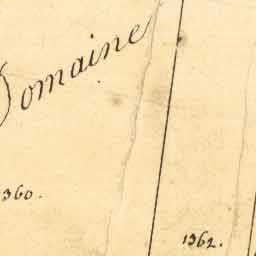 Domaine
1360.
1362.